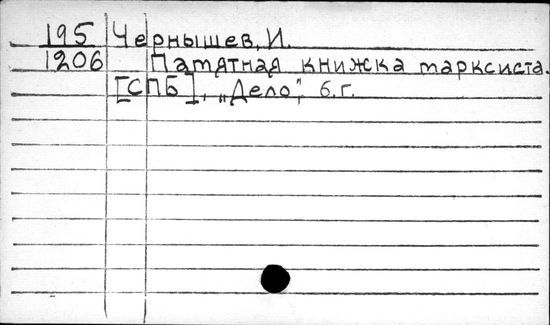 195 Чернышев, И.
1206 Памятная книжка марксиста.
[СПБ], „Дело", б.г.